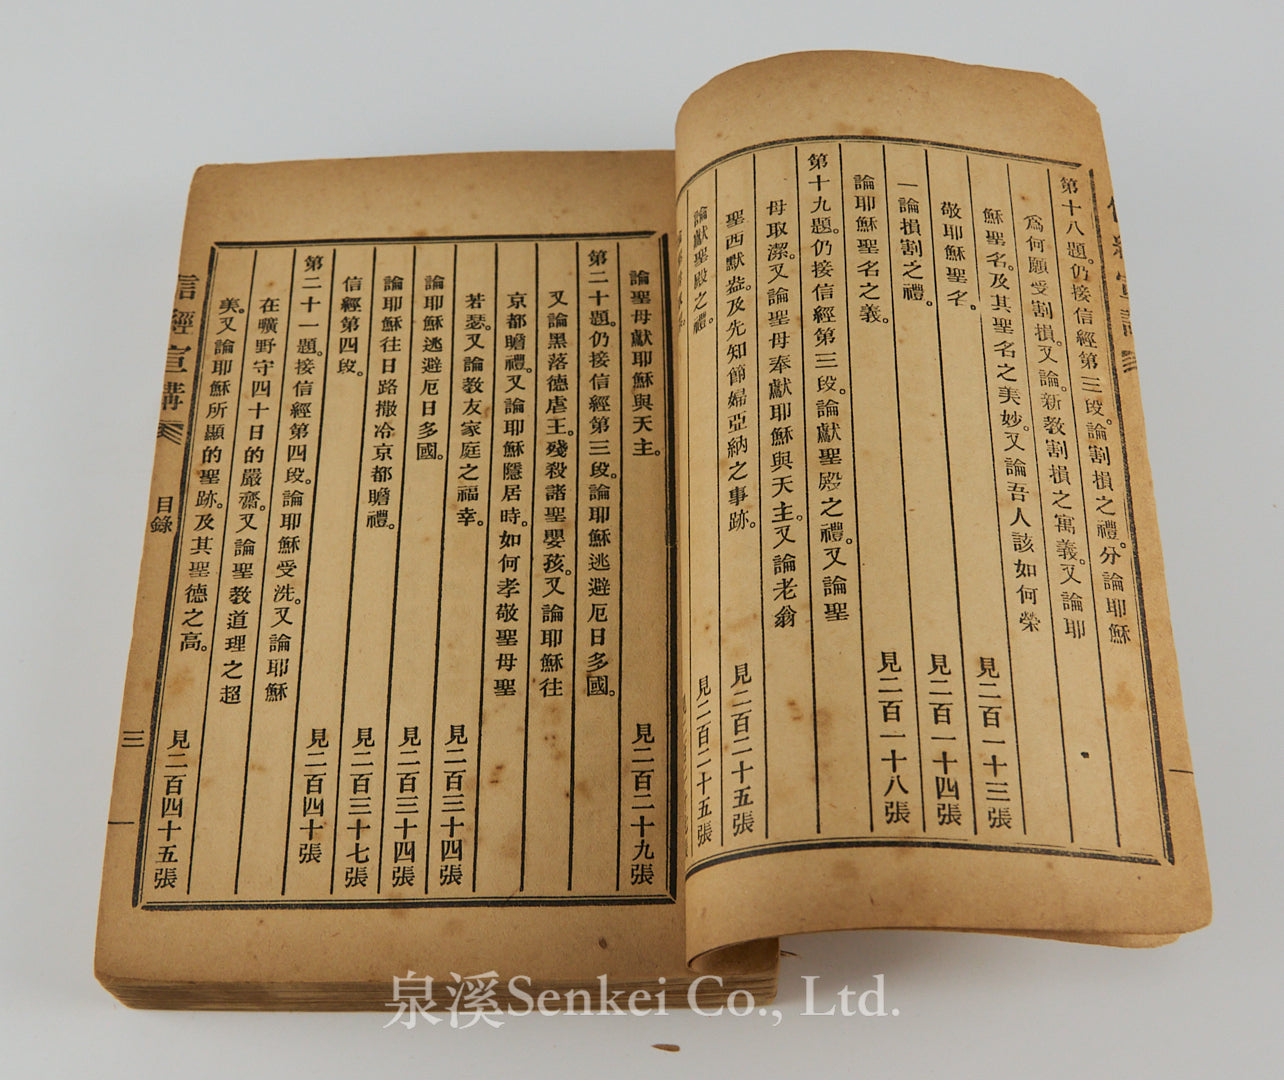 第十八題。仍接信經第三段。論割損之禮。分論耶穌
爲何願受割損。又論新教割損之寓義。又論耶
穌聖名。及其聖名之美妙。又論吾人該如何榮
敬耶穌聖名。
見二百一十三張
一論損割之禮。
見二百一十四張
論耶穌聖名之義。
見二百一十八張
第十九題。仍接信經第三段。論獻聖殿之禮。又論聖
母取潔。又論聖母奉獻耶穌與天主。又論老翁
聖西默盎。及先知節婦亞納之事跡。
見二百二十五張
論獻聖殿之禮。
見二百二十五張
論聖母獻耶穌與天主。
見二百二十九張
第二十題。仍接信經第三段。論耶穌逃避厄日多國。
又論黑落德虐王。殘殺諸聖嬰孩。又論耶穌往
京都瞻禮。又論耶穌隱居時。如何孝敬聖母聖
若瑟。又論教友家庭之福幸。
見二百三十四張
論耶穌逃避厄日多國。
見二百三十四張
論耶穌往日路撒冷京都瞻禮。
見二百三十七張
信經第四段。
見二百四十張
第二十一題。接信經第四段。論耶穌受洗。又論耶穌
在曠野守四十日的嚴齋。又論聖教道理之超
美。又論耶穌所顯的聖跡。及其聖德之高。
見二百四十五張
信經宣講
目錄
三
泉溪Senkei Co., Ltd.